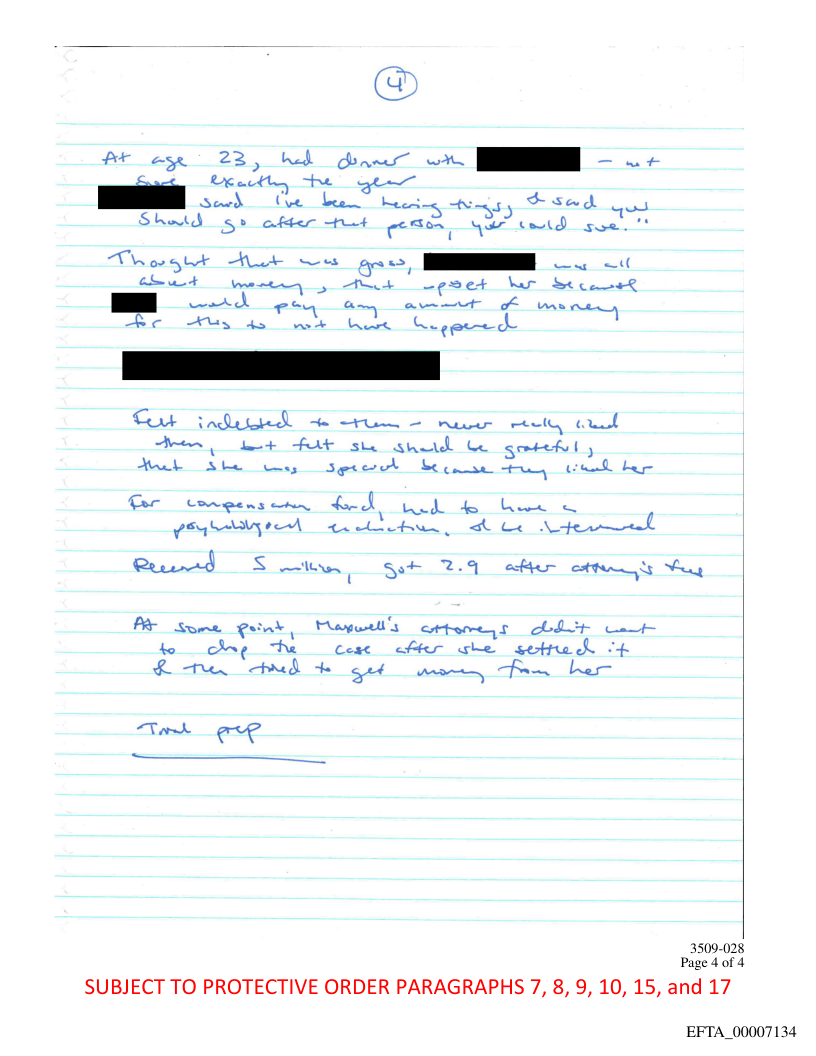 4
At age 23, had dinner with — not
sure exactly the year
said I've been hearing things, & said you
should go after that person, you could sue."
Thought that was gross, was all
about money, that upset her because
would pay any amount of money
for this to not have happened
Felt indebted to them - never really liked
them, but felt she should be grateful,
that she was special because they liked her
For compensation fund, had to have a
psychological evaluation, & be interviewed
Received 5 million, got 2.9 after attorney's fees
At some point, Maxwell's attorneys didn't want
to drop the case after she settled it
& then tried to get money from her
Trial prep
3509-028
Page 4 of 4
SUBJECT TO PROTECTIVE ORDER PARAGRAPHS 7, 8, 9, 10, 15, and 17
EFTA_00007134